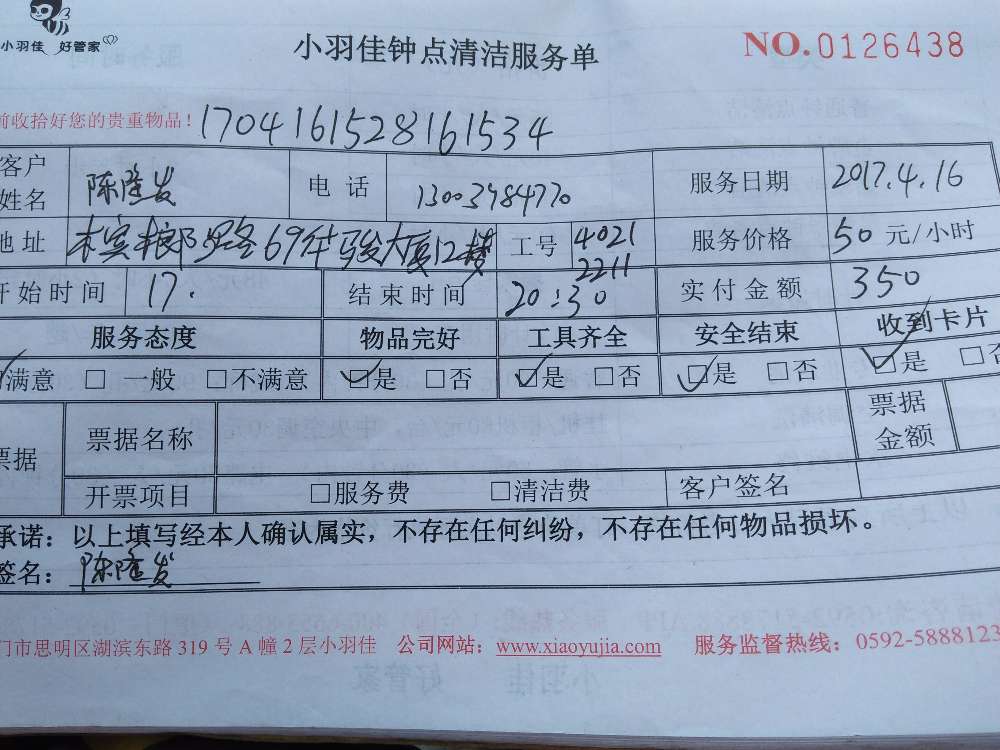 小羽佳 好管家
小羽佳钟点清洁服务单
NO.0126438
前收拾好您的贵重物品！1704161528161534
客户姓名 陈隆发 电话 13003984770 服务日期 2017.4.16
地址 69 骏大厦12楼 工号 4021 2211 服务价格 50 元/小时
开始时间 17. 结束时间 20:30 实付金额 350
服务态度 物品完好 工具齐全 安全结束 收到卡片
满意 □ 一般 □不满意 ☑是 □否 ☑是 □否 ☑是 □否 ☑是 □否
票据 票据名称 票据金额
开票项目 □服务费 □清洁费 客户签名
承诺：以上填写经本人确认属实，不存在任何纠纷，不存在任何物品损坏。
签名：陈隆发
门市思明区湖滨东路 319 号 A 幢 2 层小羽佳 公司网站：www.xiaoyujia.com 服务监督热线：0592-5888123